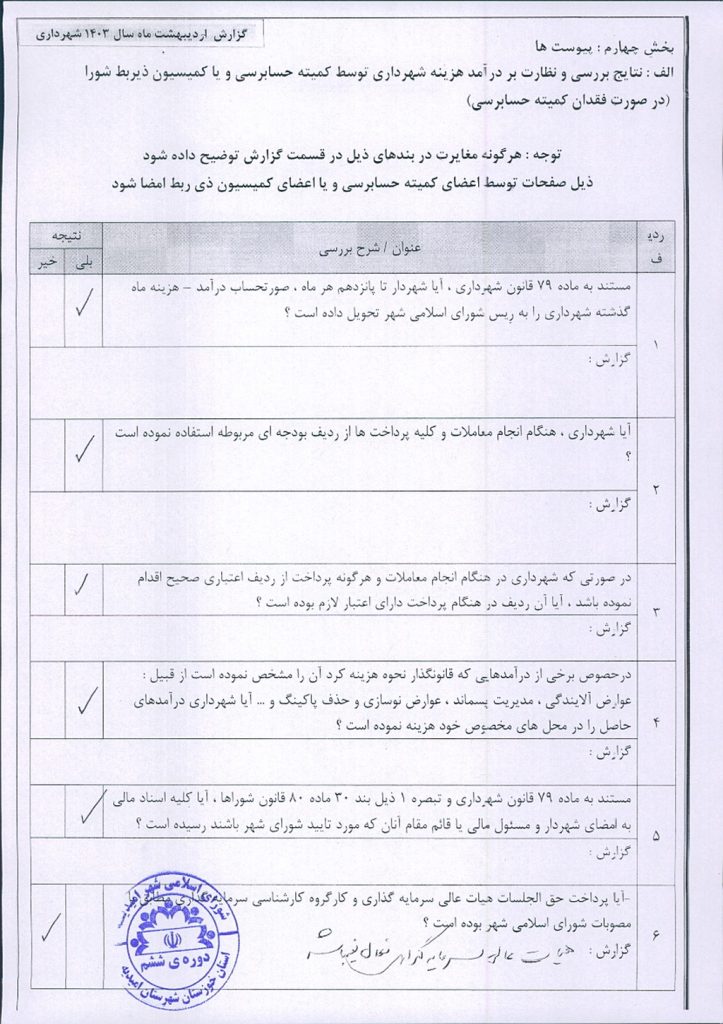 گزارش اردیبهشت ماه سال ۱۴۰۳ شهرداری
بخش چهارم : پیوست ها
الف : نتایج بررسی و نظارت بر درآمد هزینه شهرداری توسط کمیته حسابرسی و یا کمیسیون ذیربط شورا
(در صورت فقدان کمیته حسابرسی)
توجه : هرگونه مغایرت در بندهای ذیل در قسمت گزارش توضیح داده شود
ذیل صفحات توسط اعضای کمیته حسابرسی و یا اعضای کمیسیون ذی ربط امضا شود
ردیف
عنوان / شرح بررسی
نتیجه
بلی
خیر
۱
مستند به ماده ۷۹ قانون شهرداری ، آیا شهردار تا پانزدهم هر ماه ، صورتحساب درآمد – هزینه ماه
گذشته شهرداری را به ریس شورای اسلامی شهر تحویل داده است ؟
✓
گزارش :
۲
آیا شهرداری ، هنگام انجام معاملات و کلیه پرداخت ها از ردیف بودجه ای مربوطه استفاده نموده است
؟
✓
گزارش :
۳
در صورتی که شهرداری در هنگام انجام معاملات و هرگونه پرداخت از ردیف اعتباری صحیح اقدام
نموده باشد ، آیا آن ردیف در هنگام پرداخت دارای اعتبار لازم بوده است ؟
✓
گزارش :
۴
درخصوص برخی از درآمدهایی که قانونگذار نحوه هزینه کرد آن را مشخص نموده است از قبیل :
عوارض آلایندگی ، مدیریت پسماند ، عوارض نوسازی و حذف پاکینگ و ... آیا شهرداری درآمدهای
حاصل را در محل های مخصوص خود هزینه نموده است ؟
✓
گزارش :
۵
مستند به ماده ۷۹ قانون شهرداری و تبصره ۱ ذیل بند ۳۰ ماده ۸۰ قانون شوراها ، آیا کلیه اسناد مالی
به امضای شهردار و مسئول مالی یا قائم مقام آنان که مورد تایید شورای شهر باشند رسیده است ؟
✓
گزارش :
۶
-آیا پرداخت حق الجلسات هیات عالی سرمایه گذاری و کارگروه کارشناسی سرمایه گذاری مطابق با
مصوبات شورای اسلامی شهر بوده است ؟
✓
گزارش : هیات عالی سرمایه گذاری فعال نمیباشد
شورای اسلامی شهر امیدیه
دوره ی ششم
استان خوزستان شهرستان امیدیه